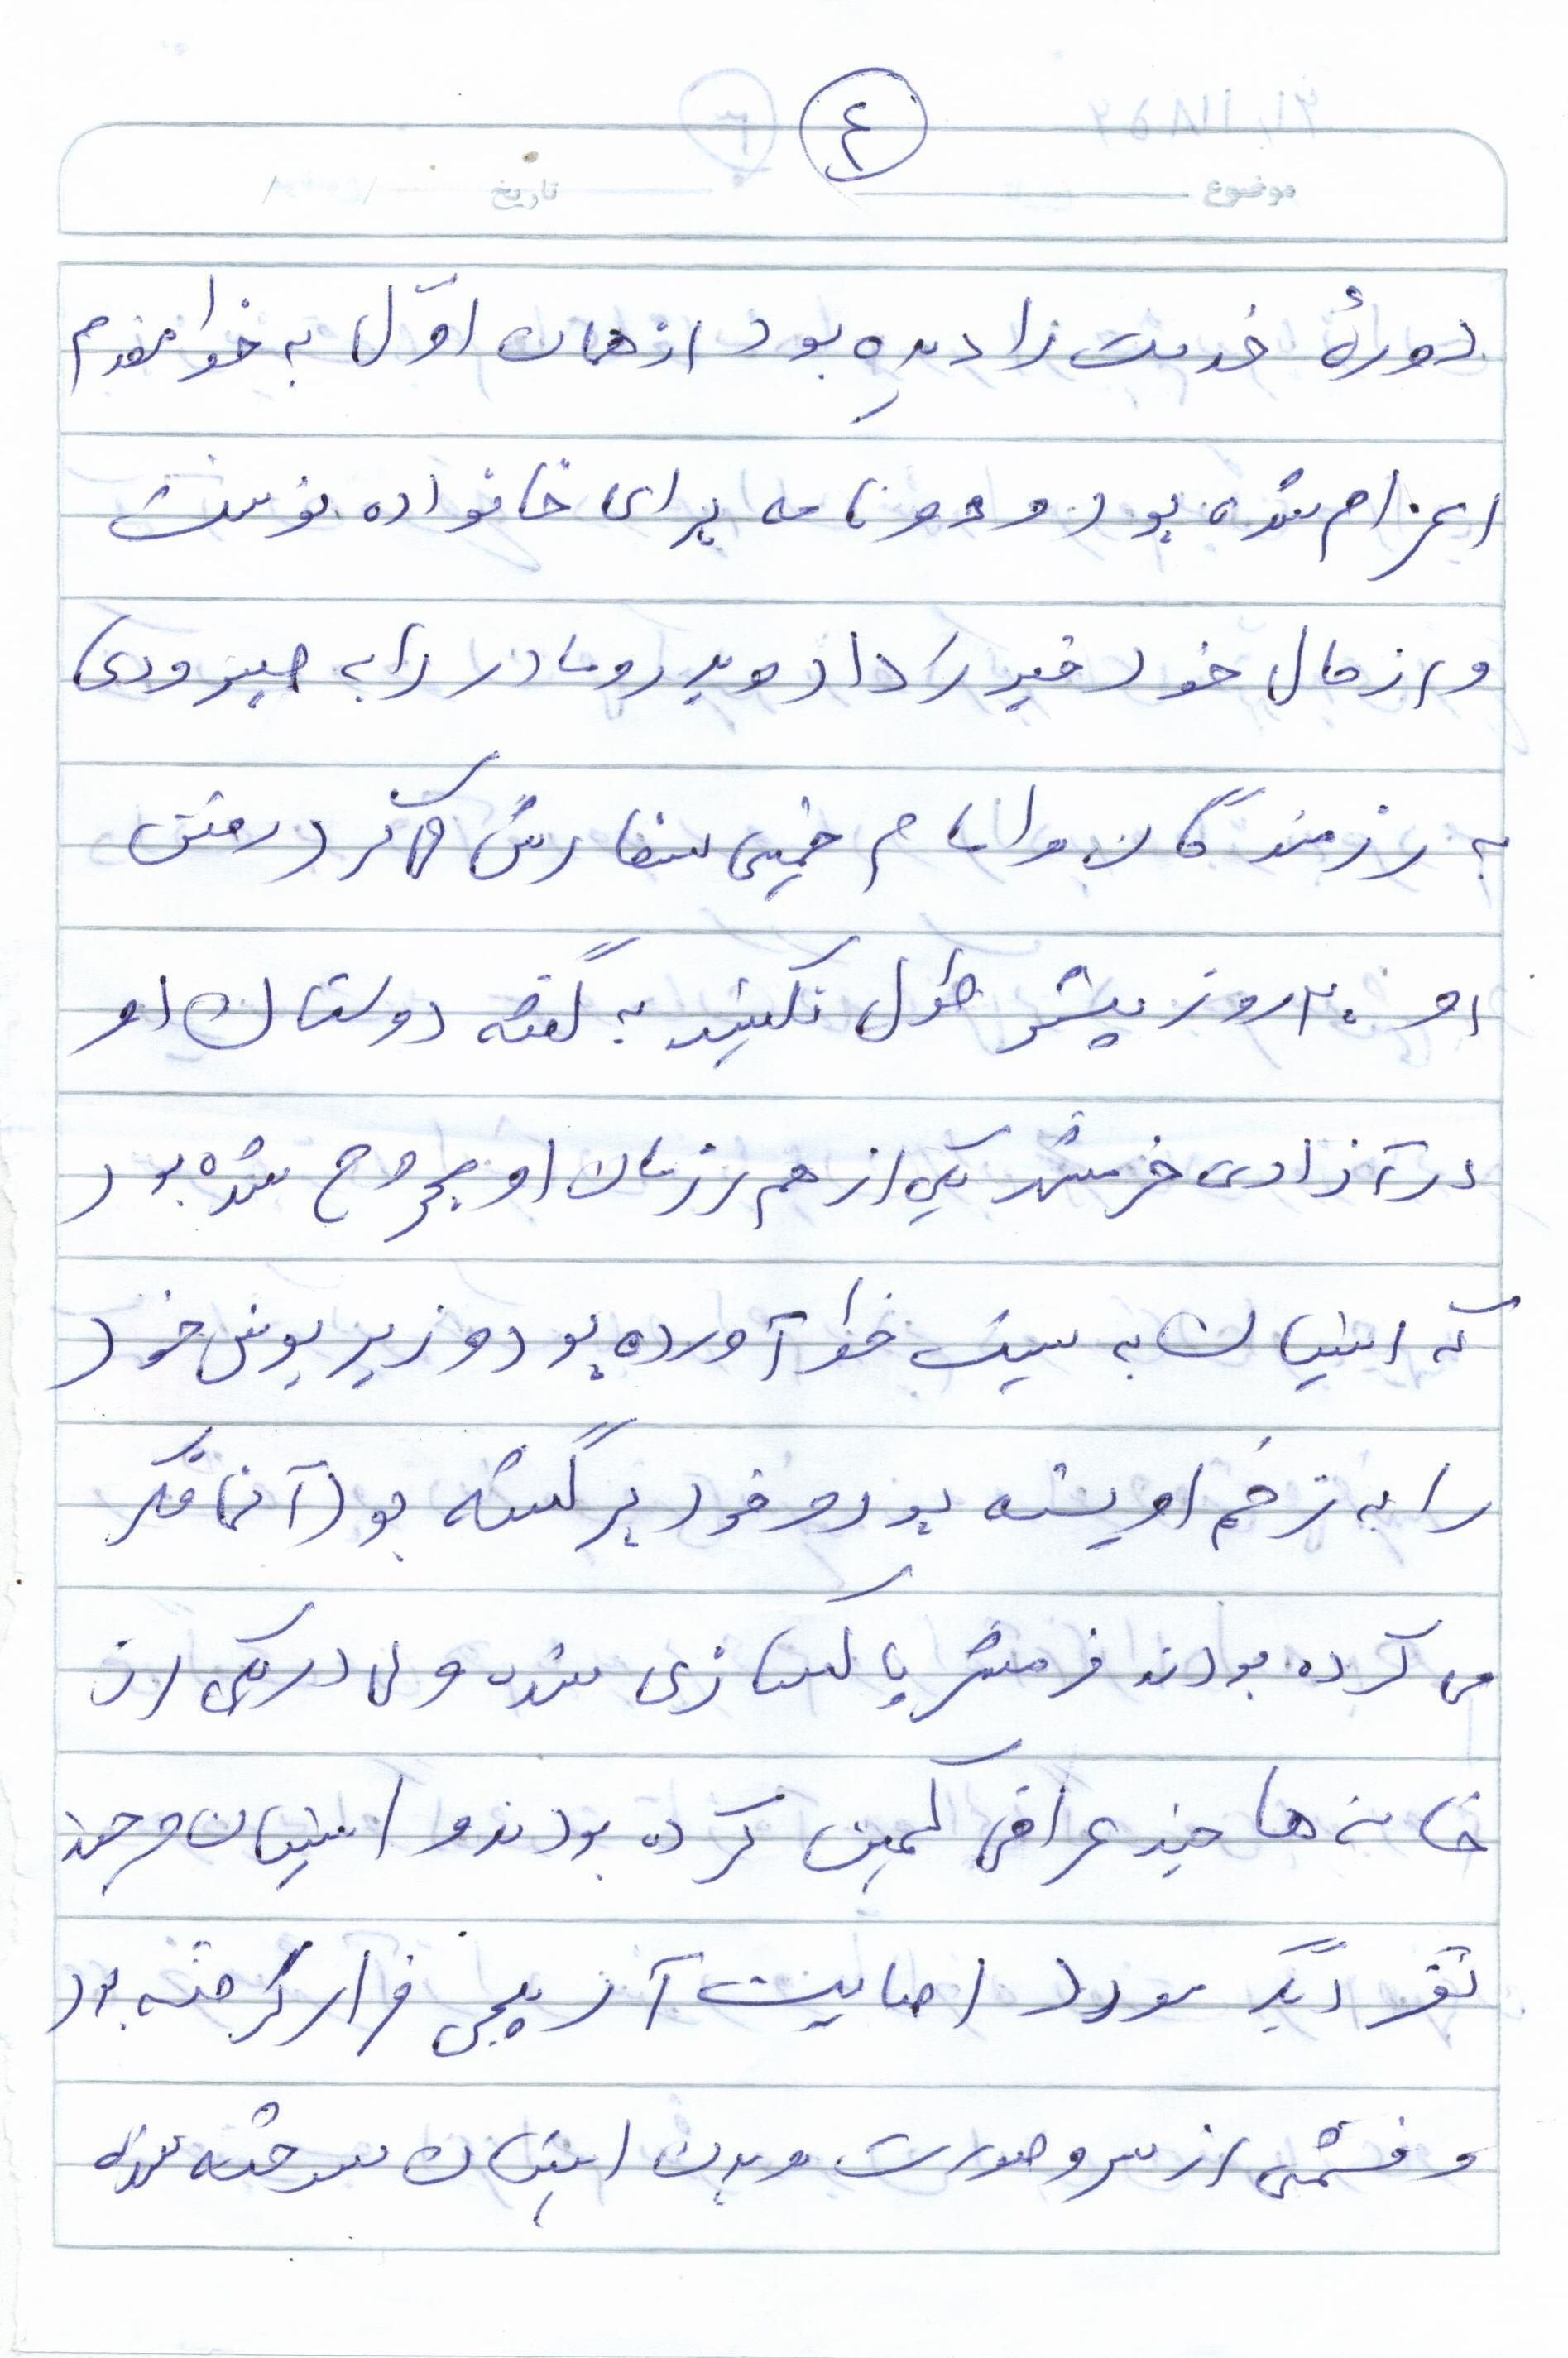 ٤
موضوع تاریخ / /
دورهٔ خدمت را دیده بود از همان اوّل به خط مقدم
اعزام شده بود و دو نامه برای خانواده نوشت
و از حال خود خبر داد و پدر و مادر را به صبر و دعای
به رزمندگان و امام خمینی سفارش کرد رفتن
او ۲۰ روز بیشتر طول نکشید به گفته دوستان او
در آزادی خرمشهر یکی از هم رزمان او مجروح شده بود
که ایشان به پشت خط آورده بود و زیر پوش خود
را به زخم او بسته بود و خود برگشته بود آنها فکر
می کرده بودند خرمشهر پاکسازی شده ولی در یکی از
خانه ها چند عراقی کمین کرده بودند و ایشان و چند
نفر دیگر مورد اصابت آر پی جی قرار گرفته بود
و قسمتی از سر و صورت و بدن ایشان سوخته بوده